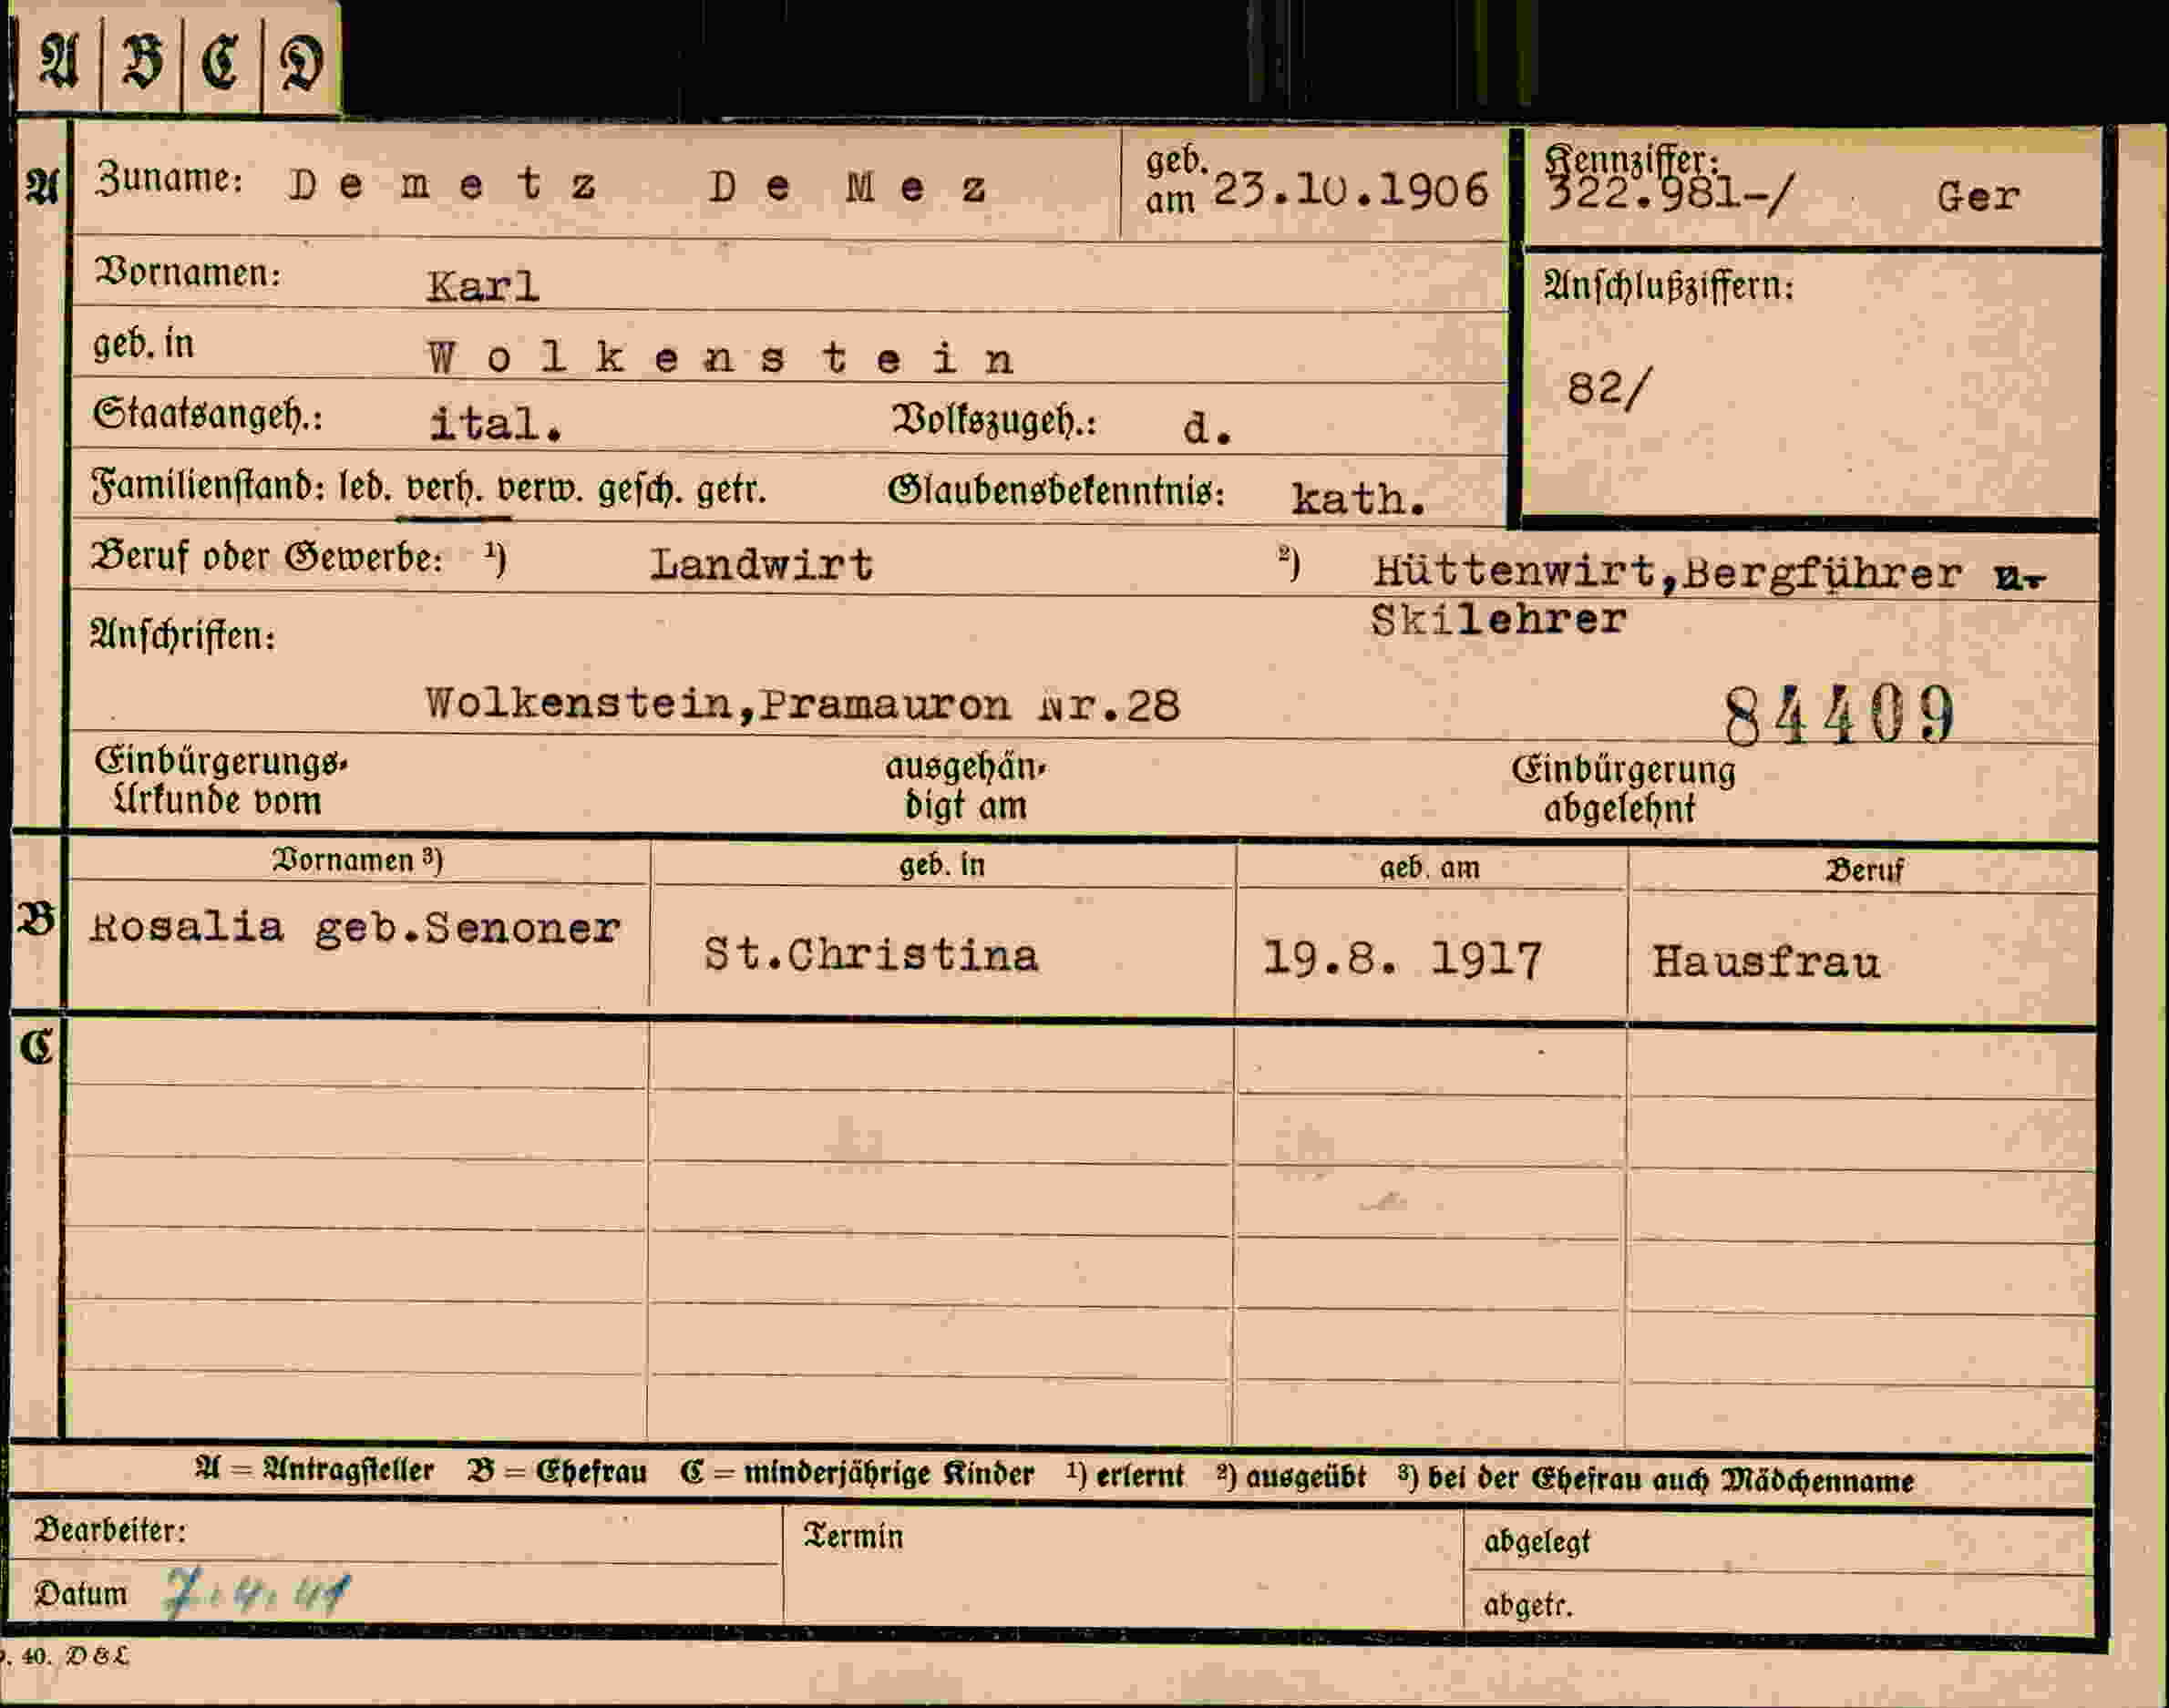 A B C D
A Zuname: Demetz De Mez geb. am 23.10.1906 Kennziffer: 322.981-/ Ger
Vornamen: Karl
Anschlußziffern:
geb. in Wolkenstein
82/
Staatsangeh.: ital. Volkszugeh.: d.
Familienstand: led. verh. verw. gesch. getr. Glaubensbekenntnis: kath.
Beruf oder Gewerbe: 1) Landwirt 2) Hüttenwirt,Bergführer u.
Skilehrer
Anschriften:
Wolkenstein,Pramauron Nr.28
84409
Einbürgerungs-
Urkunde vom
ausgehän-
digt am
Einbürgerung
abgelehnt
Vornamen 3) geb. in geb. am Beruf
B Rosalia geb.Senoner St.Christina 19.8. 1917 Hausfrau
C
A = Antragsteller B = Ehefrau C = minderjährige Kinder 1) erlernt 2) ausgeübt 3) bei der Ehefrau auch Mädchenname
Bearbeiter: Termin abgelegt
Datum 7.4.41 abgetr.
. 40. D & L